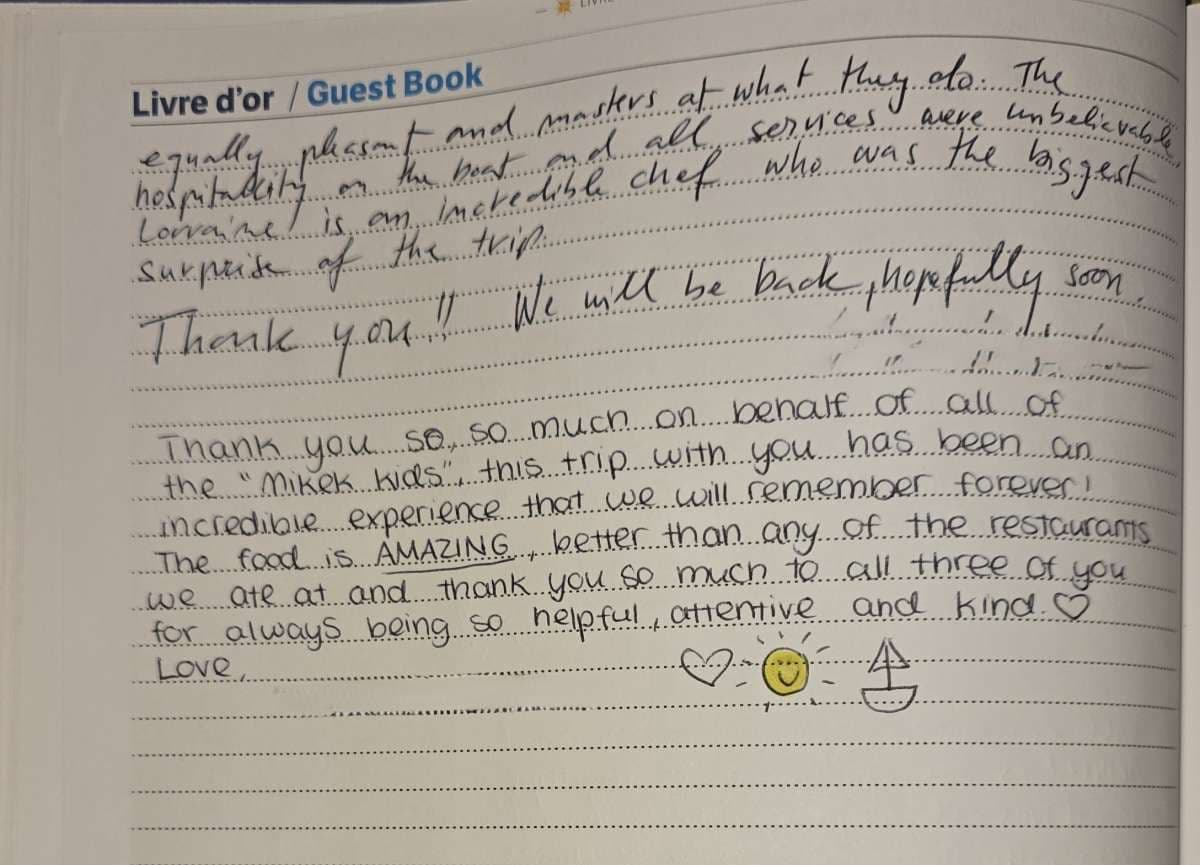 Livre d'or / Guest Book
equally pleasant and masters at what they do. The
hospitality on the boat and all services were unbelievable.
Lorraine is an incredible chef who was the biggest
surprise of the trip.
Thank you!! We will be back, hopefully soon.
Thank you so, so much on behalf of all of
the "Mikek kids", this trip with you has been an
incredible experience that we will remember forever!
The food is AMAZING, better than any of the restaurants
we ate at and thank you so much to all three of you
for always being so helpful, attentive and kind.
Love,